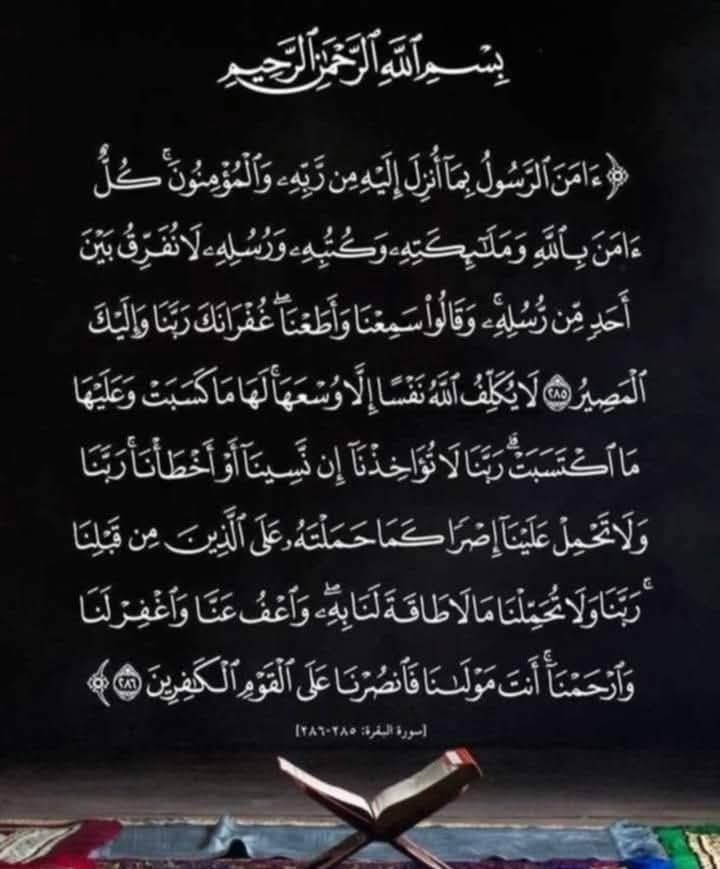 بِسْمِ ٱللَّهِ ٱلرَّحْمَٰنِ ٱلرَّحِيمِ
﴿ءَامَنَ ٱلرَّسُولُ بِمَآ أُنزِلَ إِلَيْهِ مِن رَّبِّهِۦ وَٱلْمُؤْمِنُونَ ۚ كُلٌّ
ءَامَنَ بِٱللَّهِ وَمَلَٰٓئِكَتِهِۦ وَكُتُبِهِۦ وَرُسُلِهِۦ لَا نُفَرِّقُ بَيْنَ
أَحَدٍ مِّن رُّسُلِهِۦ ۚ وَقَالُوا۟ سَمِعْنَا وَأَطَعْنَا ۖ غُفْرَانَكَ رَبَّنَا وَإِلَيْكَ
ٱلْمَصِيرُ ٢٨٥ لَا يُكَلِّفُ ٱللَّهُ نَفْسًا إِلَّا وُسْعَهَا ۚ لَهَا مَا كَسَبَتْ وَعَلَيْهَا
مَا ٱكْتَسَبَتْ ۗ رَبَّنَا لَا تُؤَاخِذْنَآ إِن نَّسِينَآ أَوْ أَخْطَأْنَا ۚ رَبَّنَا
وَلَا تَحْمِلْ عَلَيْنَآ إِصْرًا كَمَا حَمَلْتَهُۥ عَلَى ٱلَّذِينَ مِن قَبْلِنَا
ۚ رَبَّنَا وَلَا تُحَمِّلْنَا مَا لَا طَاقَةَ لَنَا بِهِۦ ۖ وَٱعْفُ عَنَّا وَٱغْفِرْ لَنَا
وَٱرْحَمْنَآ ۚ أَنتَ مَوْلَىٰنَا فَٱنصُرْنَا عَلَى ٱلْقَوْمِ ٱلْكَٰفِرِينَ ٢٨٦﴾
[سورة البقرة: ٢٨٥-٢٨٦]